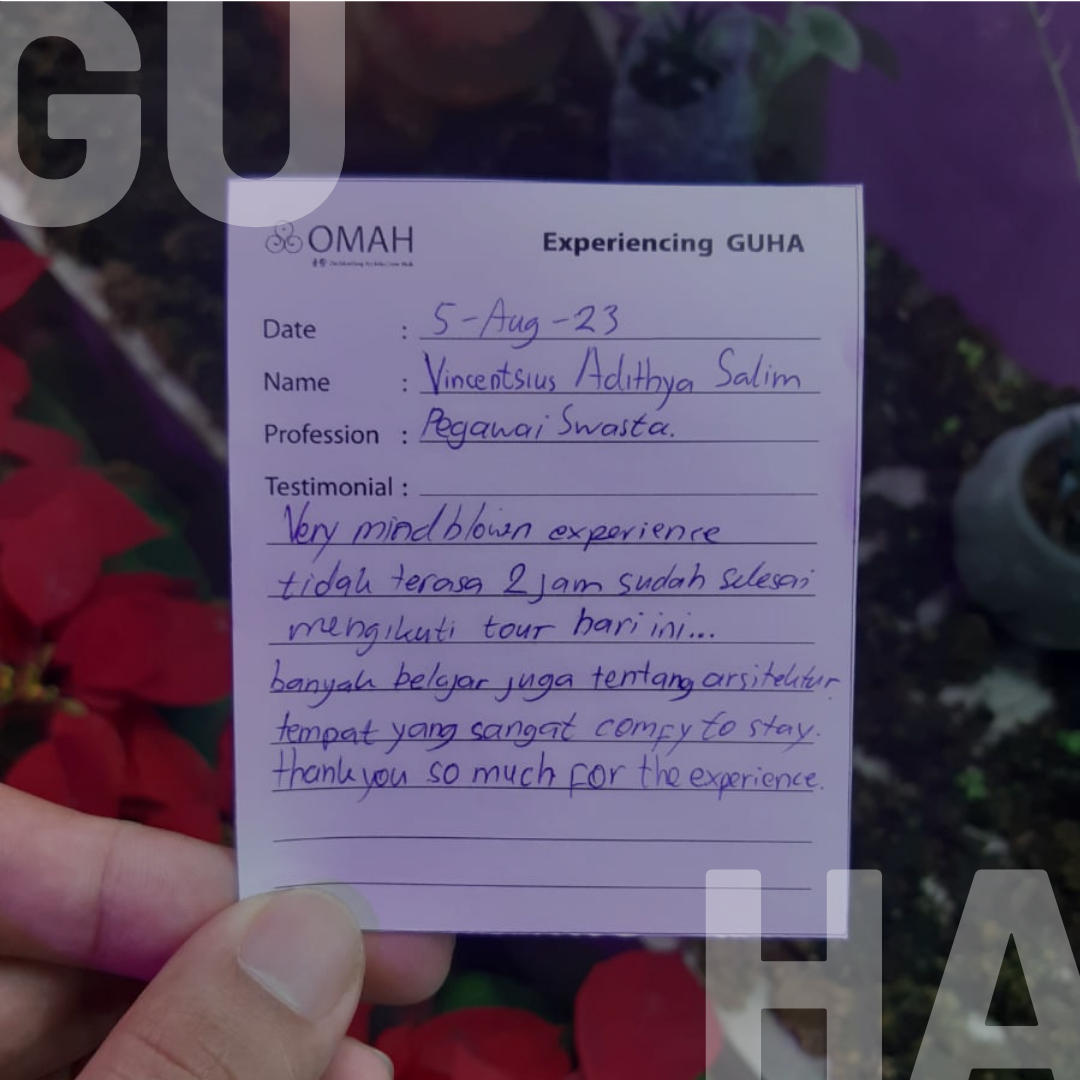 GU
OMAH
Experiencing GUHA
Date : 5-Aug-23
Name : Vincentsius Adithya Salim
Profession : Pegawai Swasta.
Testimonial :
Very mindblown experience
tidak terasa 2 jam sudah selesai
mengikuti tour hari ini...
banyak belajar juga tentang arsitektur.
tempat yang sangat comfy to stay.
thank you so much for the experience.
HA